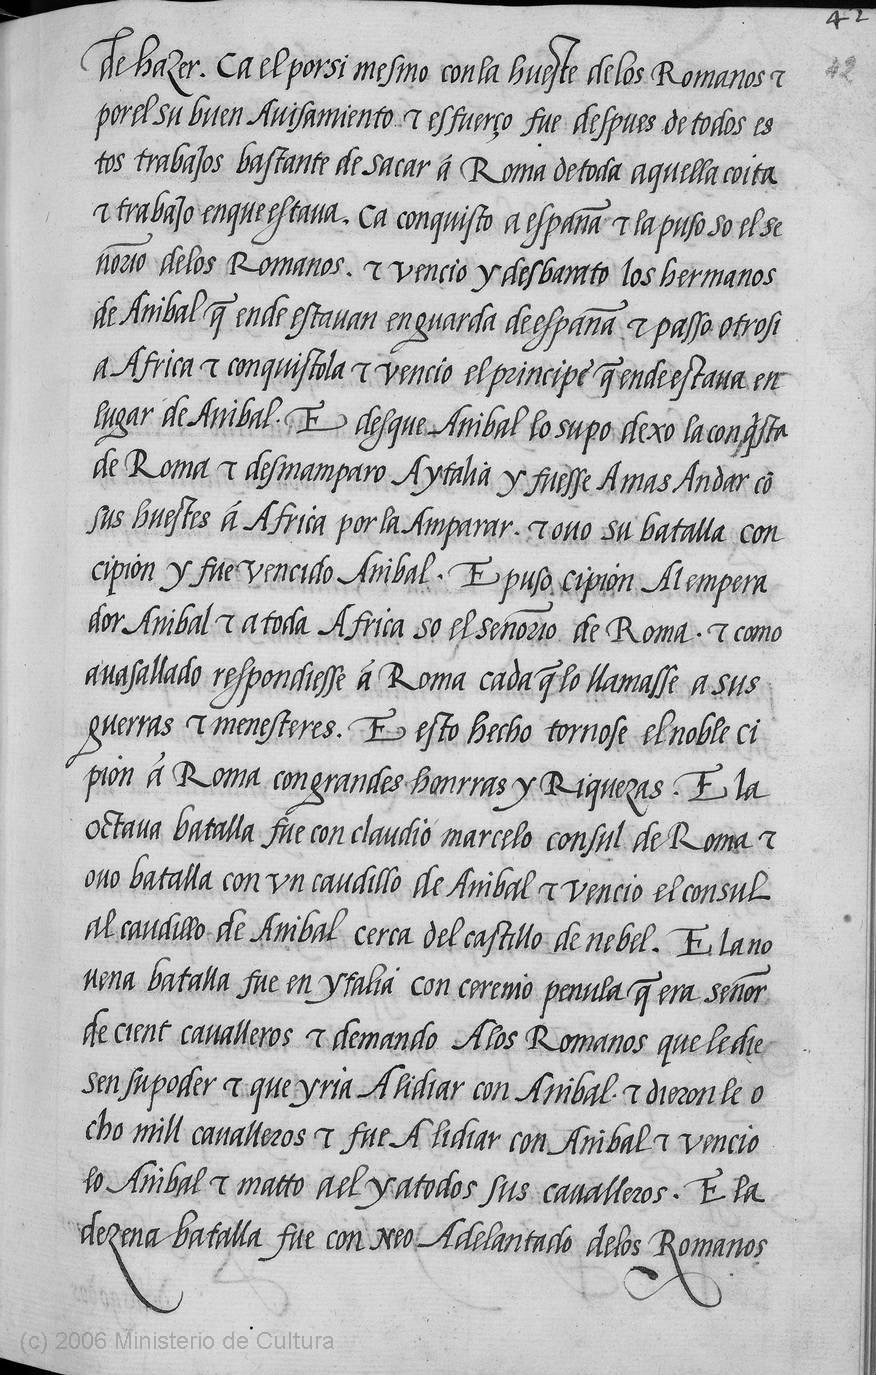 42
42
de hazer. Ca el por si mesmo con la hueste de los Romanos ⁊
por el su buen Auisamiento ⁊ esfuerço fue despues de todos es
tos trabajos bastante de sacar á Roma de toda aquella coita
⁊ trabajo en que estaua. Ca conquisto a españa ⁊ la puso so el se
ñorio de los Romanos. ⁊ vencio y desbarato los hermanos
de Anibal q̄ ende estauan en guarda de españa ⁊ passo otrosi
a Africa ⁊ conquistola ⁊ vencio el principe q̄ ende estaua en
lugar de Anibal. E desque Anibal lo supo dexo la conq̄sta
de Roma ⁊ desmamparo Aytalia y fuesse A mas Andar cō
sus huestes á Africa por la Amparar. ⁊ ouo su batalla con
cipion y fue vencido Anibal. E puso cipion Al empera
dor Anibal ⁊ a toda Africa so el señorio de Roma. ⁊ como
auasallado respondiesse á Roma cada q̄ lo llamasse a sus
guerras ⁊ menesteres. E esto hecho tornose el noble ci
pion á Roma con grandes honrras y Riquezas. E la
octaua batalla fue con claudio marcelo consul de Roma ⁊
ouo batalla con vn caudillo de Anibal ⁊ vencio el consul
al caudillo de Anibal cerca del castillo de nebel. E la no
uena batalla fue en ytalia con cerenio penula q̄ era señor
de cient caualleros ⁊ demando A los Romanos que le die
sen su poder ⁊ que yria A lidiar con Anibal. ⁊ dieron le o
cho mill caualleros ⁊ fue A lidiar con Anibal ⁊ vencio
lo Anibal ⁊ matto a el y a todos sus caualleros. E la
dezena batalla fue con neo Adelantado de los Romanos
(c) 2006 Ministerio de Cultura